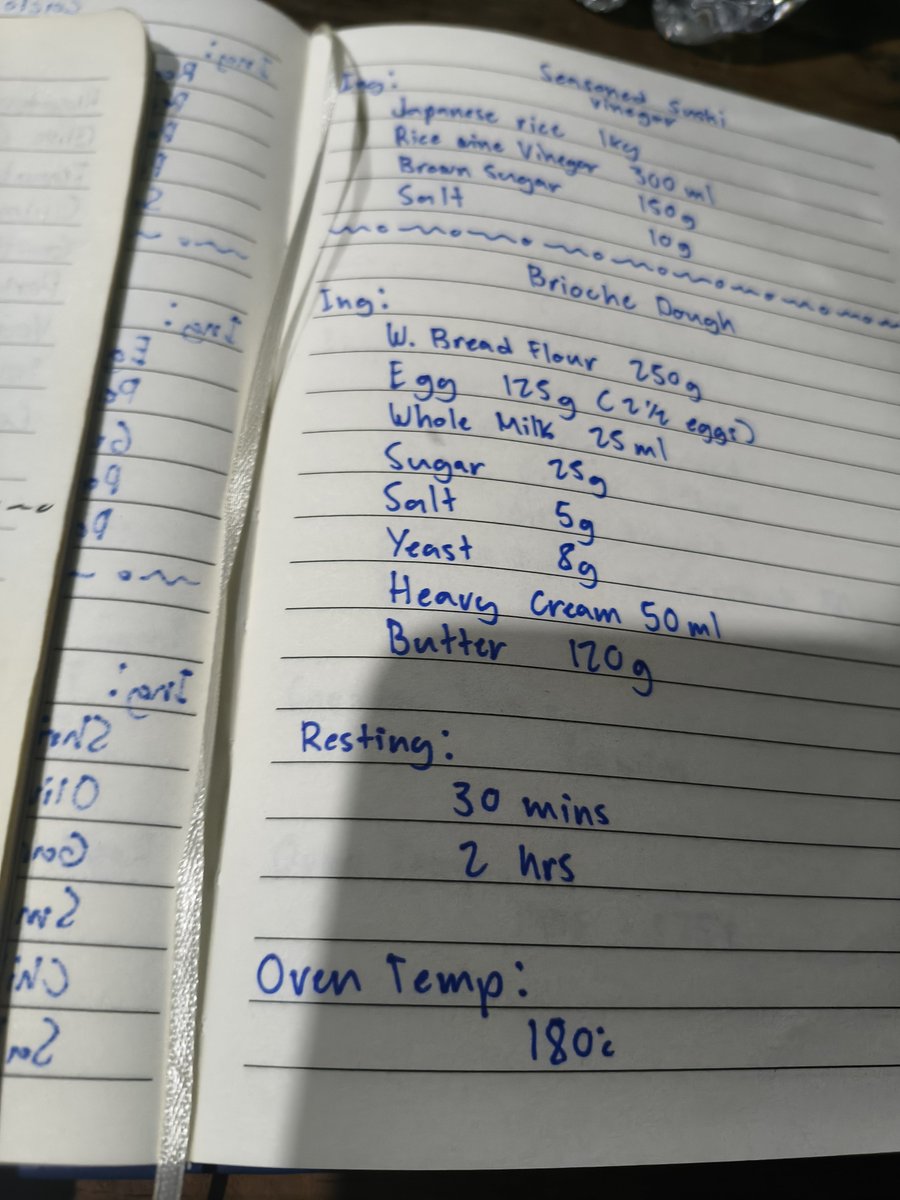 Seasoned Sushi
Vinegar
Ing:
Japanese rice 1kg
Rice wine Vinegar 300 ml
Brown Sugar 150g
Salt 10g
Brioche Dough
Ing:
W. Bread Flour 250g
Egg 125g (2 1/2 eggs)
Whole Milk 25 ml
Sugar 25g
Salt 5g
Yeast 8g
Heavy Cream 50 ml
Butter 120g
Resting:
30 mins
2 hrs
Oven Temp:
180°c